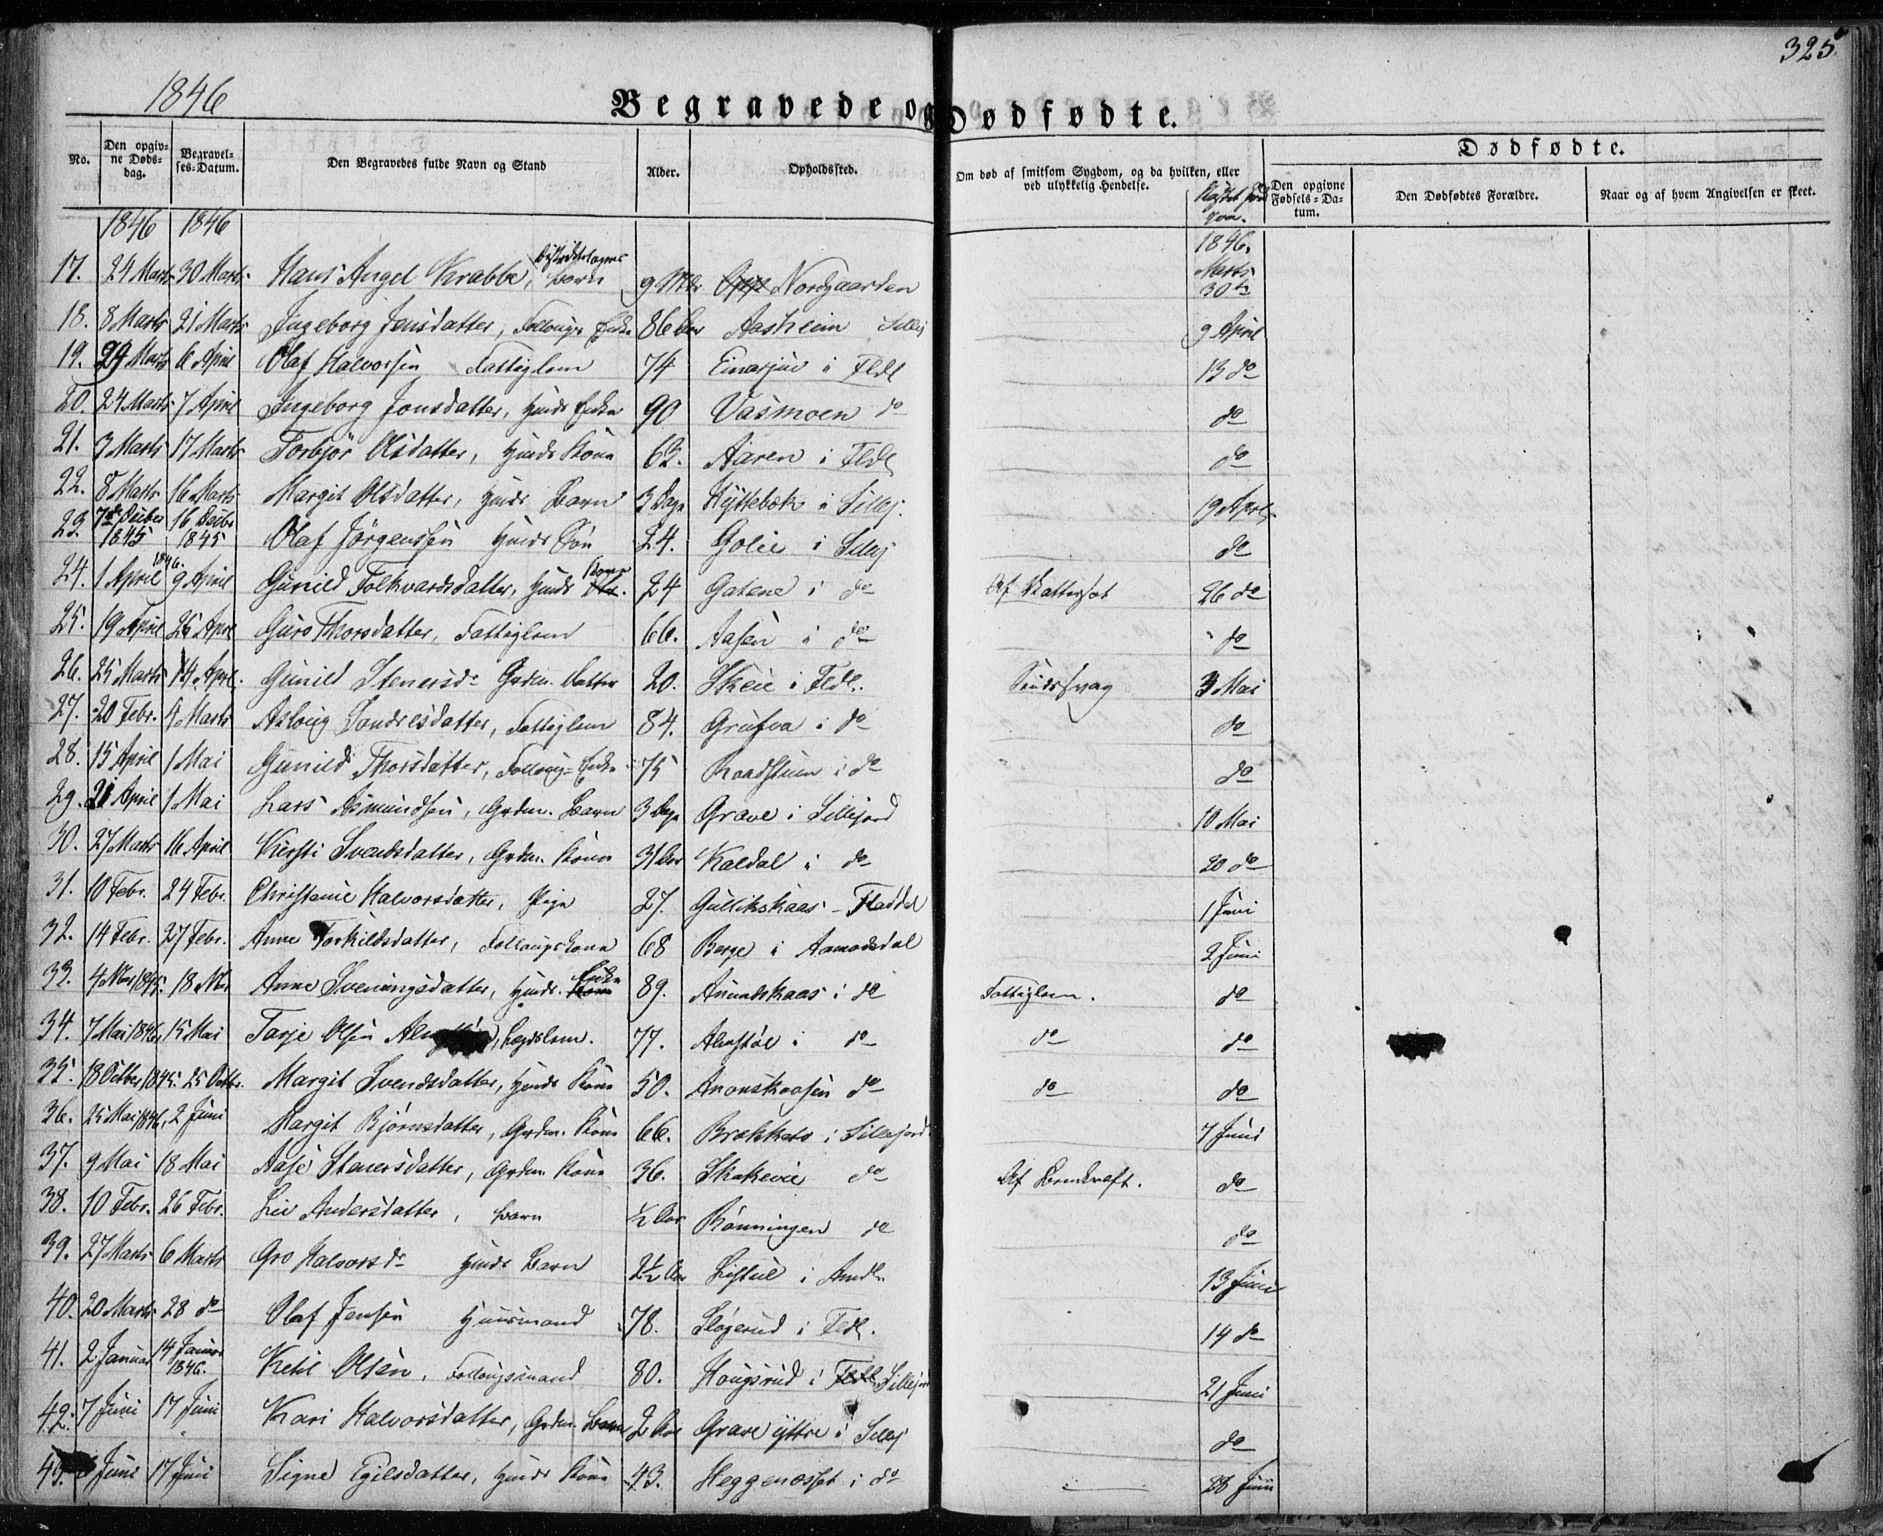 325
1846
Begravede og Dødfødte.
No. Den opgivne Dødsdag. Begravelses-Datum. Den Begravedes fulde Navn og Stand Alder. Opholdssted. Om død af smitsom Sygdom, og da hvilken, eller ved ulykkelig Hendelse. Dødfødte.
Den opgivne Fødsels-Datum. Den Dødfødtes Forældre. Naar og af hvem Angivelsen er skeet.
1846 1846 1846.
17. 24 Marts 30 Marts Hans Angel Krabbe, Barn 9 Mdr Nordgaarden Marts 30te
18. 8 Marts 21 Marts Ingeborg Jensdatter, Enke 86 Aar Aasheim Sillej 9 April
19. 29 Marts 6 April Olaf Halvorsen Fattiglem 74 Einarjuv i Fldl 13 do
20. 24 Marts 7 April Ingeborg Jonsdatter, Huusds Enke 90 Vasmoen do do
21. 3 Marts 17 Marts Torbjør Olsdatter, Huusds Kone 62. Aaren i Fldl do
22. 8 Marts 16 Marts Margit Olsdatter, Huusds Barn 3 Dage Hyttebæk i Sillej. 19 April
23. 7de Decbr 1845 16 Decbr 1845 Olaf Jörgensen Huusds Søn 24. Golie i Sillej do
24. 1 April 1846. 9 April Gunild Folkvardsdatter, Huusds Kone 24 Gatene i do 26 do
25. 19 April 26 Apri Guro Thorsdatter, Fattiglem 66. Aasen i do do
26. 25 Marts 14 April. Gunild Stenersdr Grdm. Datter 20. Skeie i Fldl. Sindssvag 3 Mai
27. 20 Febr. 4 Marts Aslaug Sondresdatter, Fattiglem 84. Grufva i do do
28. 15 April 1 Mai Gunild Thorsdatter, Enke 75 Raadstuen i do do
29. 21 April 1 Mai Lars Asmundsen, Grdm. Barn 3 Dage Grave i Sillejord 10 Mai
30. 27 Marts 16 April Kirsti Svendsdatter, Grdm. Kone 31 Aar Kaldal i do 20 do
31. 10 Febr. 24 Febr. Christense Halvorsdatter, Pige 27. Gullikskaas - Fladdal 1 Juni
32. 14 Febr. 27 Febr. Anne Torkildsdatter, Follougskone 68 Berge i Aamodsdal 2 Juni
33. 4 Nbr 1845. 18 Nbr Anne Sveningsdatter, Huusds. Enke 89. Anundskaas i do Fattiglem. do
34. 7 Mai 1846. 15 Mai Tarje Olsen Lægdslem. 77. Almstöl i do do do
35. 18 Octber 1845. 25 Octbr. Margit Svendsdatter, Huusds Kone 50. do do do
36. 25 Mai 1846. 2 Juni Margit Bjørnsdatter, Grdm. Kone 66. Brækketo i Sillejord 7 Juni
37. 9 Mai 18 Mai Aase Stenersdatter, Grdm Kone 36. do do
38. 10 Febr. 26 Febr. Liv Andersdatter, Barn 1/2 Aar Rönningen do do
39. 27 Marts 6 Marts Gro Halvorsdr Huusds Barn 2 1/2 Aar Listul i Amdl. 13 Juni
40. 20 Marts 28 do Olaf Jensen Huusmand 78. i Fldl. 14 do
41. 2 Januar 14 Januar 1846. Ketil Olsen, Follougsmand 80. Hougsrud i Sillejord 21 Juni
42. 7 Juni 17 Juni Kari Halvorsdatter, Grdm. Barn 2 Aar Grave yttre i Sillej do
43. Juni 17 Juni Signe Egilsdatter, Huusds Kone 43. Heggenæsset i do 28 Juni